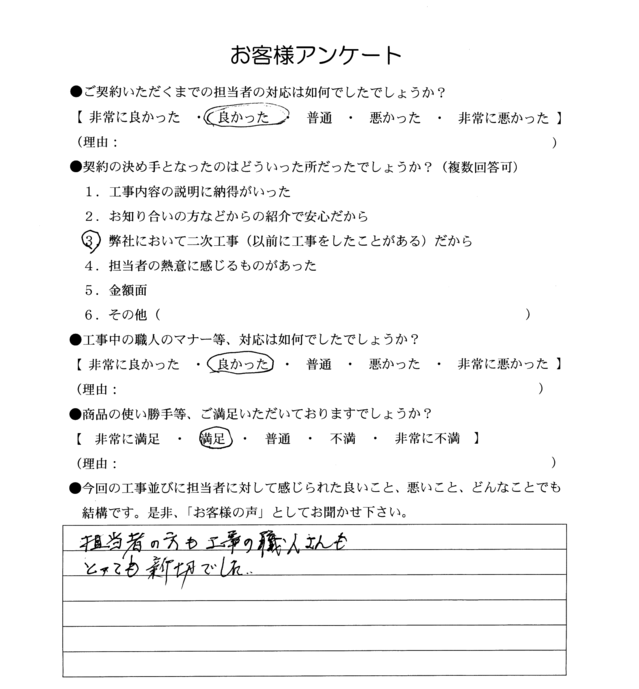 お客様アンケート
●ご契約いただくまでの担当者の対応は如何でしたでしょうか？
【 非常に良かった ・ 良かった ・ 普通 ・ 悪かった ・ 非常に悪かった 】
（理由： ）
●契約の決め手となったのはどういった所だったでしょうか？（複数回答可）
１．工事内容の説明に納得がいった
２．お知り合いの方などからの紹介で安心だから
３ 弊社において二次工事（以前に工事をしたことがある）だから
４．担当者の熱意に感じるものがあった
５．金額面
６．その他（ ）
●工事中の職人のマナー等、対応は如何でしたでしょうか？
【 非常に良かった ・ 良かった ・ 普通 ・ 悪かった ・ 非常に悪かった 】
（理由： ）
●商品の使い勝手等、ご満足いただいておりますでしょうか？
【 非常に満足 ・ 満足 ・ 普通 ・ 不満 ・ 非常に不満 】
（理由： ）
●今回の工事並びに担当者に対して感じられた良いこと、悪いこと、どんなことでも
結構です。是非、「お客様の声」としてお聞かせ下さい。
担当者の方も工事の職人さんも
とっても新切でした．